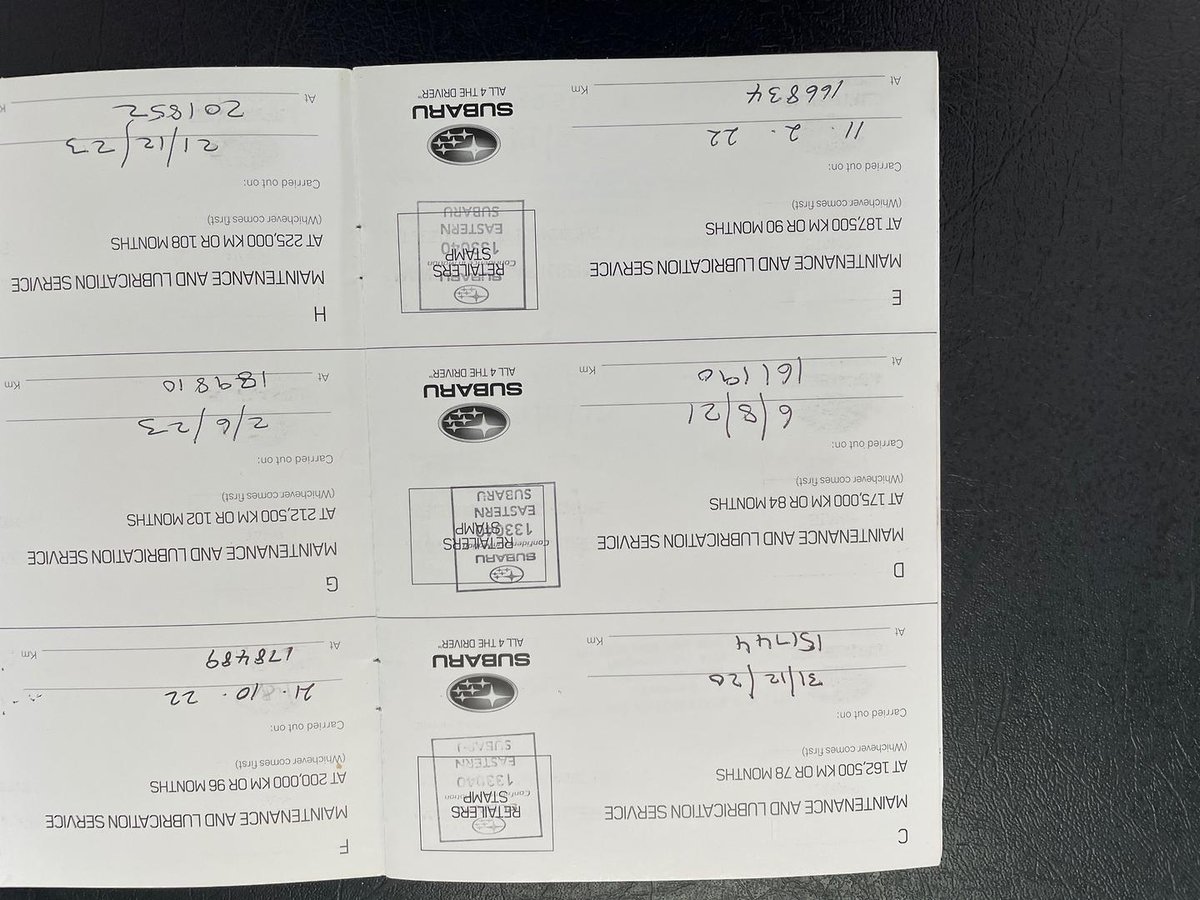 C
MAINTENANCE AND LUBRICATION SERVICE
AT 162,500 KM OR 78 MONTHS
(Whichever comes first)
Carried out on:
31/12/20
At 151744 Km
RETAILERS
STAMP
133040
EASTERN
SUBARU
SUBARU
ALL 4 THE DRIVER™
D
MAINTENANCE AND LUBRICATION SERVICE
AT 175,000 KM OR 84 MONTHS
(Whichever comes first)
Carried out on:
6/8/21
At 161190 Km
SUBARU
RETAILERS
STAMP
133040
EASTERN
SUBARU
SUBARU
ALL 4 THE DRIVER™
E
MAINTENANCE AND LUBRICATION SERVICE
AT 187,500 KM OR 90 MONTHS
(Whichever comes first)
Carried out on:
11. 2. 22
At 166834 Km
SUBARU
RETAILERS
STAMP
133040
EASTERN
SUBARU
SUBARU
ALL 4 THE DRIVER™
F
MAINTENANCE AND LUBRICATION SERVICE
AT 200,000 KM OR 96 MONTHS
(Whichever comes first)
Carried out on:
21. 10. 22
At 178489 Km
G
MAINTENANCE AND LUBRICATION SERVICE
AT 212,500 KM OR 102 MONTHS
(Whichever comes first)
Carried out on:
2/6/23
At 189810 Km
H
MAINTENANCE AND LUBRICATION SERVICE
AT 225,000 KM OR 108 MONTHS
(Whichever comes first)
Carried out on:
21/12/23
At 201852 K